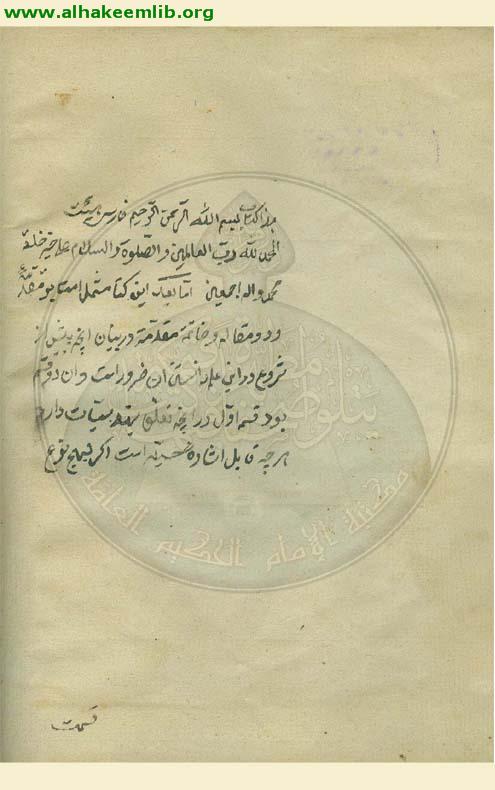 www.alhakeemlib.org
هذا كتاب بسم الله الرحمن الرحيم فارسى هيئت
الحمد لله رب العالمين والصلوة والسلام على خير خلقه
محمد واله اجمعين اما بعد اين كتاب مشتمل است بر مقدمه
ودو مقاله وخاتمة مقدمة در بيان انچه پيش از
شروع در اين علم دانستن ان ضرور است وان دو قسم
بود قسم اول در انچه تعلق بهندسيات دارد
هر چه قابل اشاره حسيه است اگر بهيچ نوع
قسمت
مكتبة الإمام الحكيم العامة